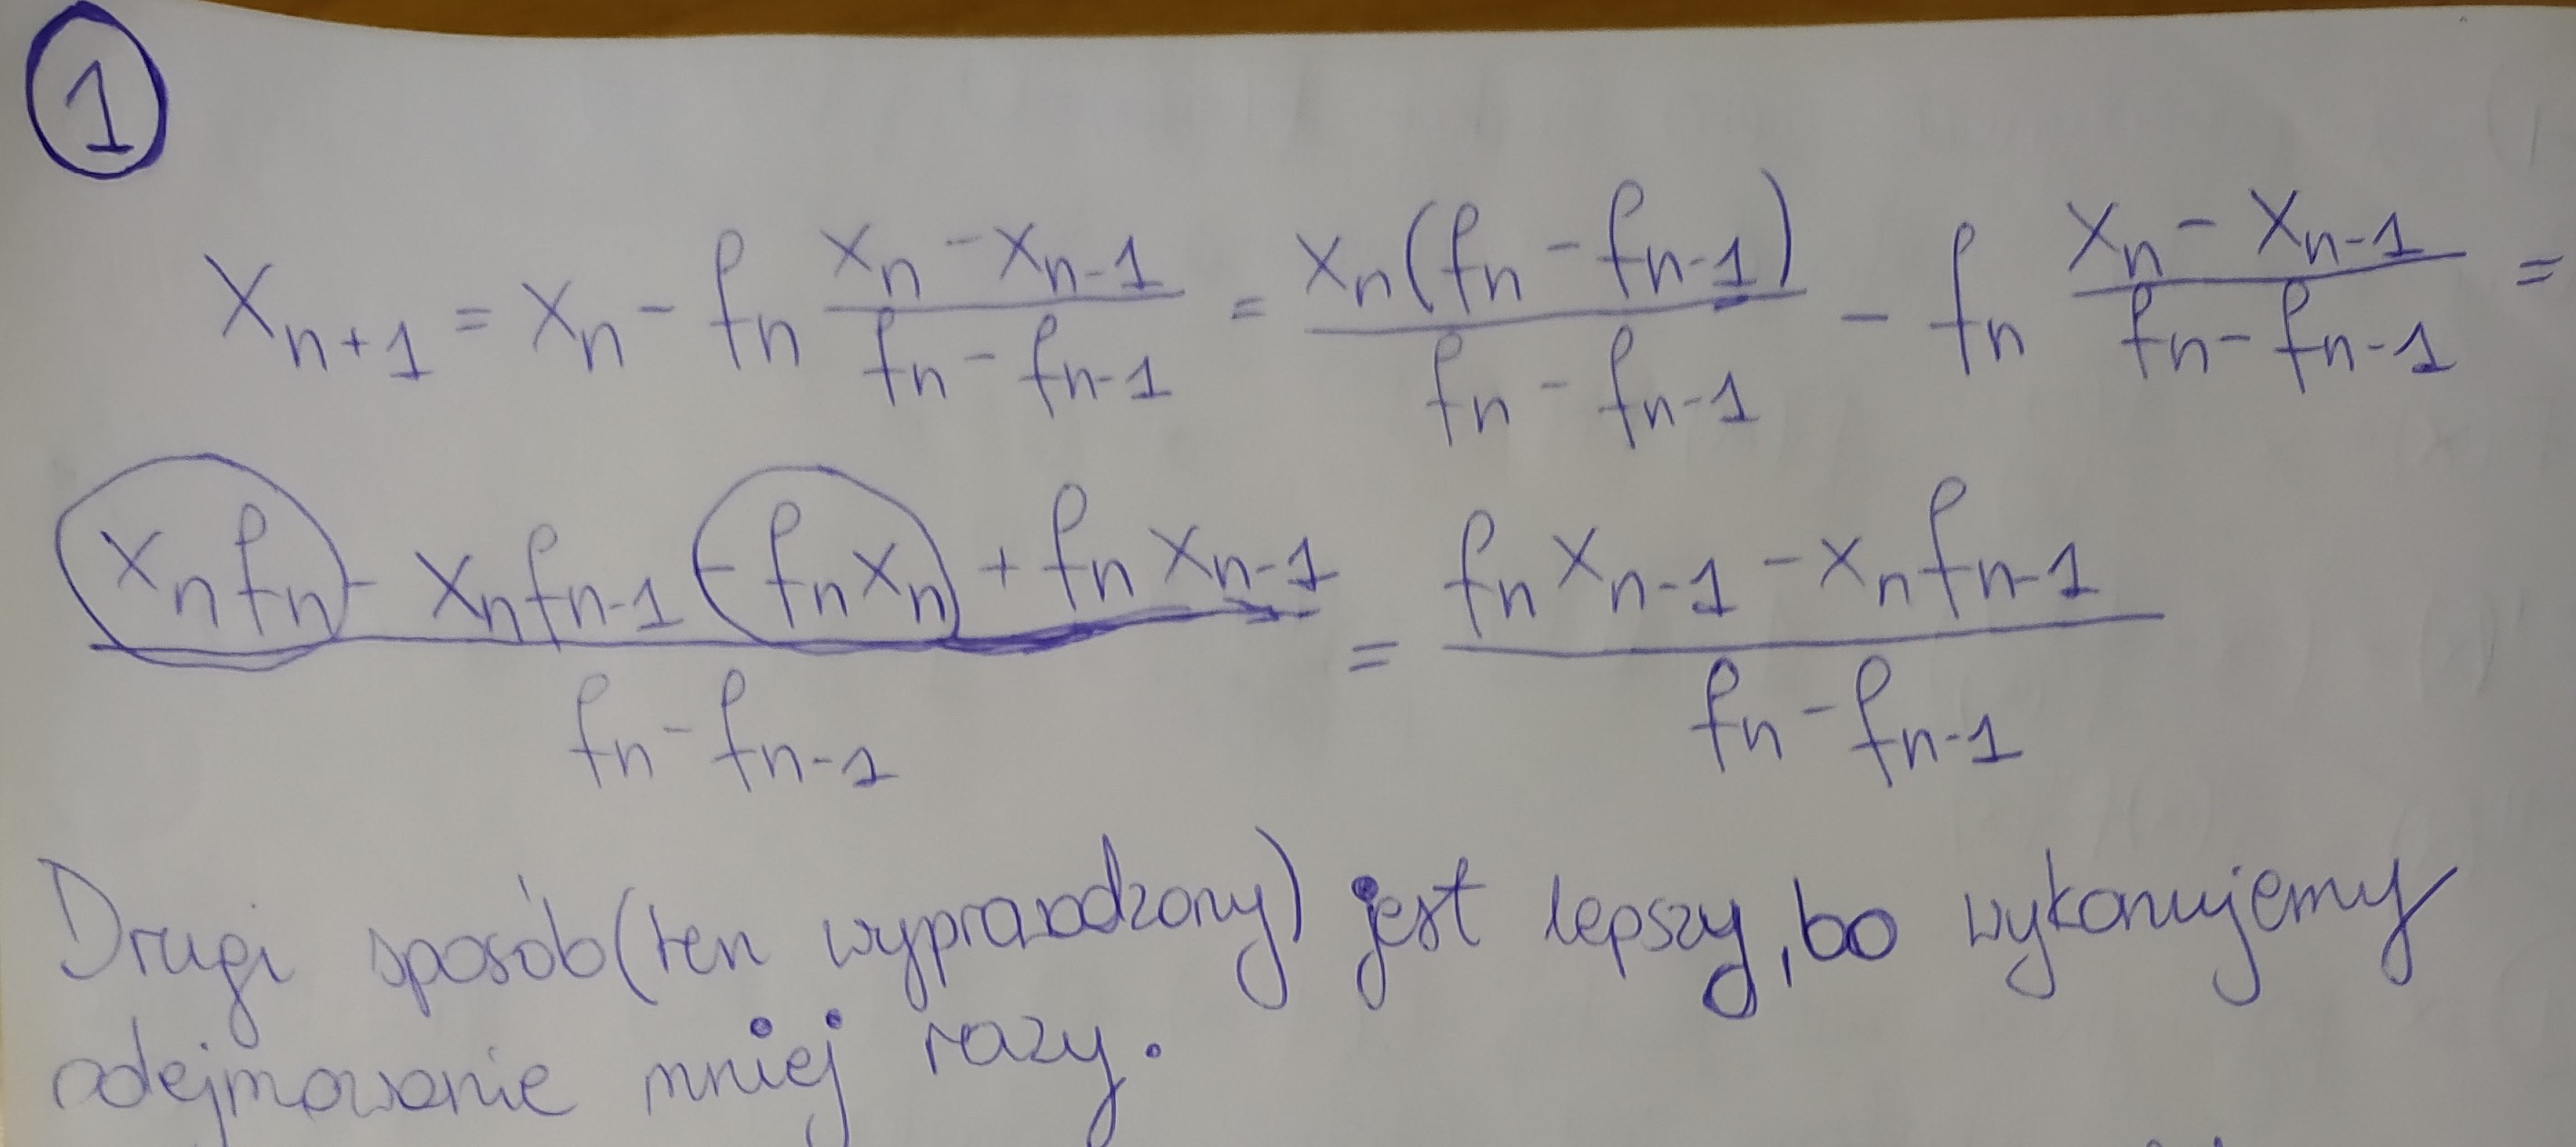 1
x_{n+1} = x_n - f_n \frac{x_n - x_{n-1}}{f_n - f_{n-1}} = \frac{x_n(f_n - f_{n-1})}{f_n - f_{n-1}} - f_n \frac{x_n - x_{n-1}}{f_n - f_{n-1}} =
\frac{x_n f_n - x_n f_{n-1} - f_n x_n + f_n x_{n-1}}{f_n - f_{n-1}} = \frac{f_n x_{n-1} - x_n f_{n-1}}{f_n - f_{n-1}}
Drugi sposób (ten wyprowadzony) jest lepszy, bo wykonujemy
odejmowanie mniej razy.